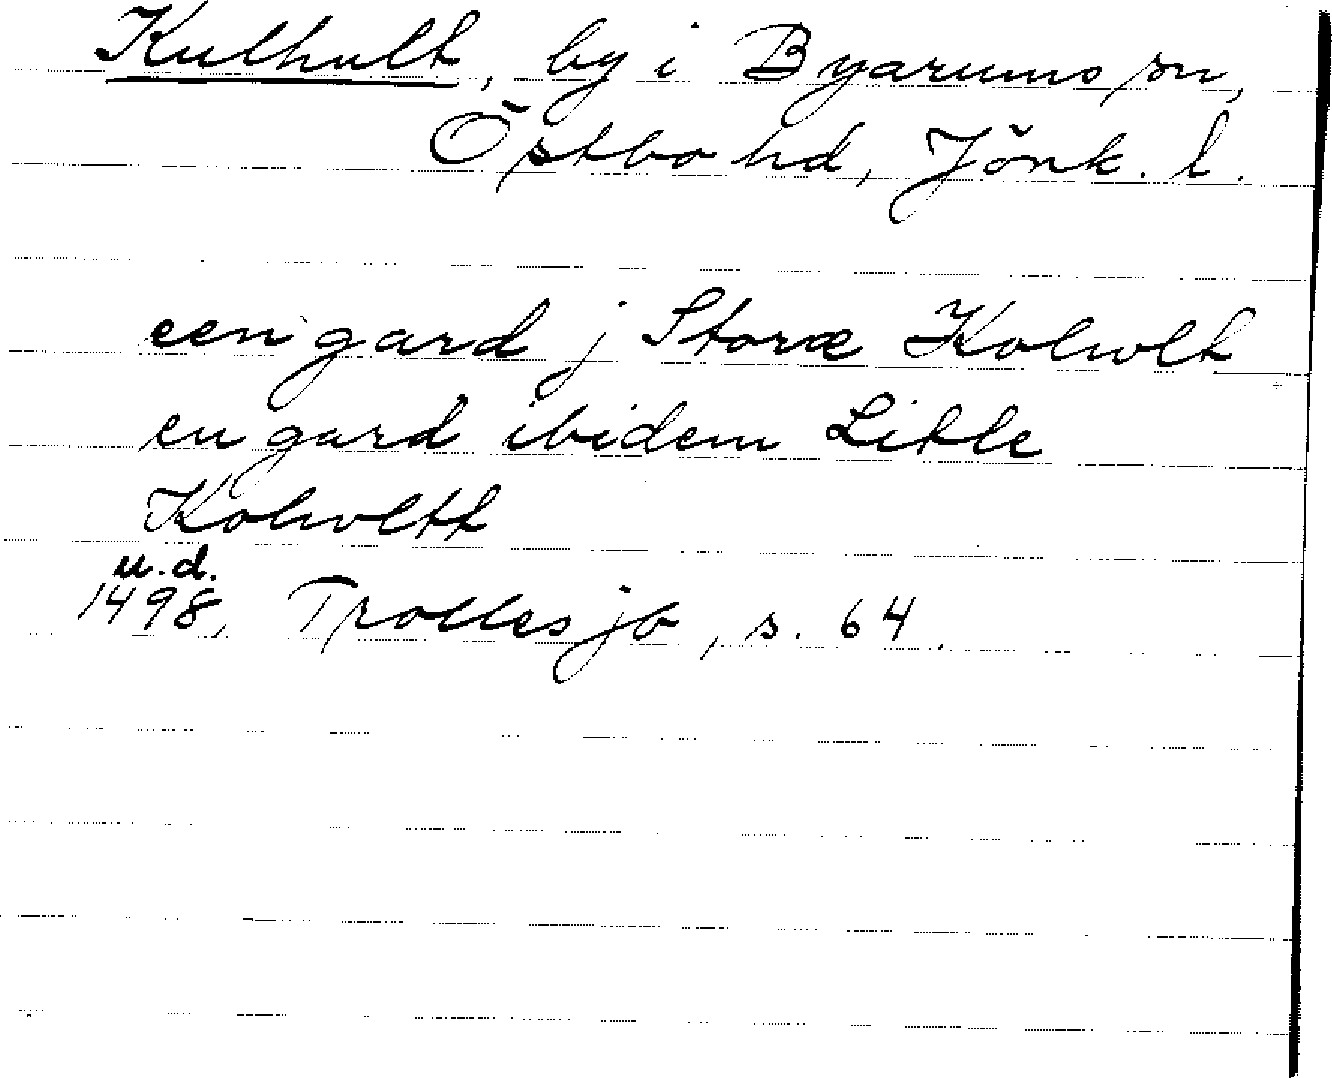 Kulhult, by i Byarums sn,
Östbo hd, Jönk. l.
een gard j Storæ Kolwlt
en gard ibidem Litle
Kolwltt
u.d.
1498, Trolles jb, s. 64.